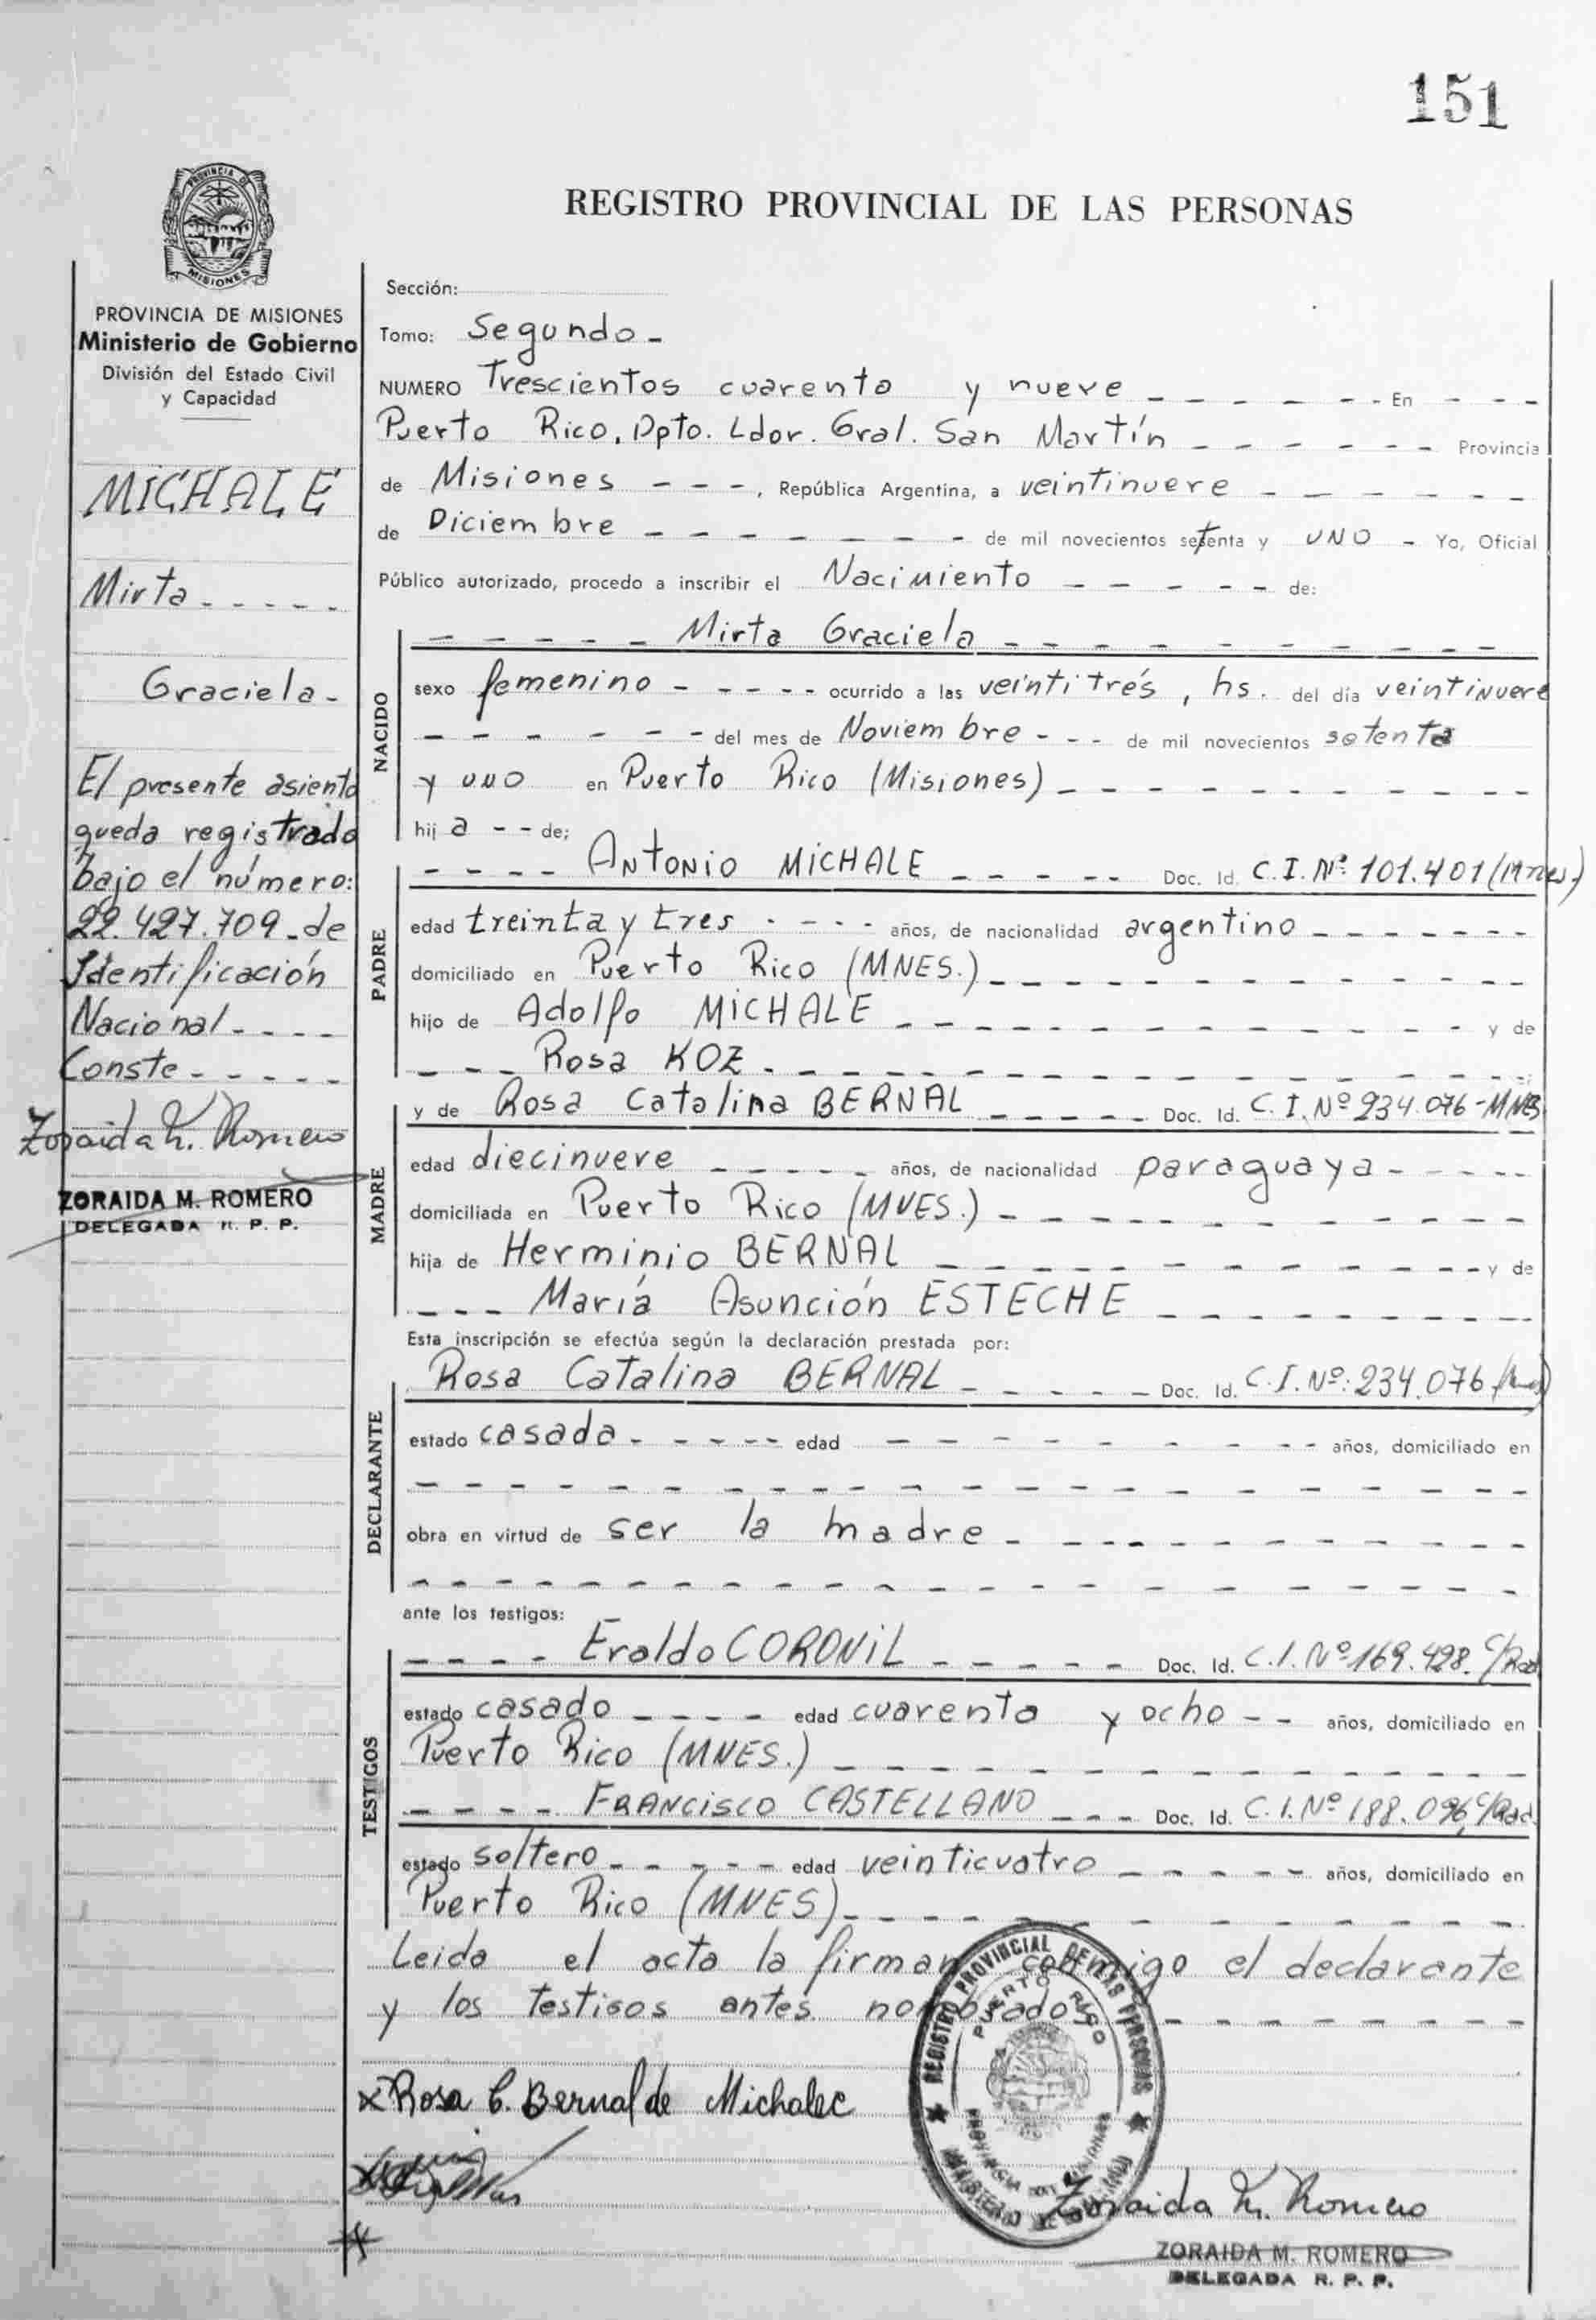 151
PROVINCIA DE
MISIONES
REGISTRO PROVINCIAL DE LAS PERSONAS
PROVINCIA DE MISIONES
Ministerio de Gobierno
División del Estado Civil
y Capacidad
MICHALE
Mirta - - - - -
Graciela -
El presente asiento
queda registrado
bajo el número:
22.427.709 - de
Identificación
Nacional - - - -
Conste - - - - -
Zoraida M. Romero
ZORAIDA M. ROMERO
DELEGADA R. P. P.
Sección:
Tomo: Segundo -
NUMERO Trescientos cuarenta y nueve - - - - - - En - - -
Puerto Rico, Dpto. Ldor. Gral. San Martín - - - - - - Provincia
de Misiones - - -, República Argentina, a veintinueve - - - - - -
de Diciembre - - - - - - - de mil novecientos setenta y UNO - Yo, Oficial
Público autorizado, procedo a inscribir el Nacimiento - - - - - de:
NACIDO
- - - - - Mirta Graciela - - - - - - - - - -
sexo femenino - - - - - ocurrido a las veintitrés, hs. del día veintinueve
- - - - - - - del mes de Noviembre - - - de mil novecientos setenta
y uno en Puerto Rico (Misiones) - - - - - - - - - - -
hija - - de:
PADRE
- - - - Antonio MICHALE - - - - - Doc. Id. C.I. Nº 101.401 (Mnes.)
edad treinta y tres - - - - años, de nacionalidad argentino - - - - - - -
domiciliado en Puerto Rico (MNES.) - - - - - - - - - - - -
hijo de Adolfo MICHALE - - - - - - - - - - - - - y de
- - - Rosa KOZ - - - - - - - - - - - - - - - -
MADRE
y de Rosa Catalina BERNAL - - - - - Doc. Id. C.I. Nº 234.076 - MNES
edad diecinueve - - - - - - años, de nacionalidad paraguaya - - - - -
domiciliada en Puerto Rico (MNES.) - - - - - - - - - - - -
hija de Herminio BERNAL - - - - - - - - - - - y de
- - - María Asunción ESTECHE - - - - - - - - - - -
Esta inscripción se efectúa según la declaración prestada por:
DECLARANTE
Rosa Catalina BERNAL - - - - - Doc. Id. C.I. Nº: 234.076
estado casada - - - - - edad - - - - - - - - - - años, domiciliado en
- - - - - - - - - - - - - - - - - - - -
obra en virtud de ser la madre - - - - - - - - - - -
- - - - - - - - - - - - - - - - - - - -
ante los testigos:
TESTIGOS
- - - - Eraldo CORONIL - - - - - - Doc. Id. C.I. Nº 169.428. C/Rad
estado casado - - - - edad cuarenta y ocho - - años, domiciliado en
Puerto Rico (MNES.) - - - - - - - - - - - - -
- - - - FRANCISCO CASTELLANO - - - Doc. Id. C.I. Nº 188.096, C/Rad.
estado soltero - - - - - - edad veinticuatro - - - - - años, domiciliado en
Puerto Rico (MNES) - - - - - - - - - - - - -
Leida el acta la firman conmigo el declarante
y los testigos antes nombrados - - - - - - - - -
REGISTRO PROVINCIAL DE LAS PERSONAS
PUERTO RICO
PROVINCIA DE MISIONES
MINISTERIO DE GOBIERNO
x Rosa C. Bernal de Michalec
Zoraida M. Romero
ZORAIDA M. ROMERO
DELEGADA R. P. P.